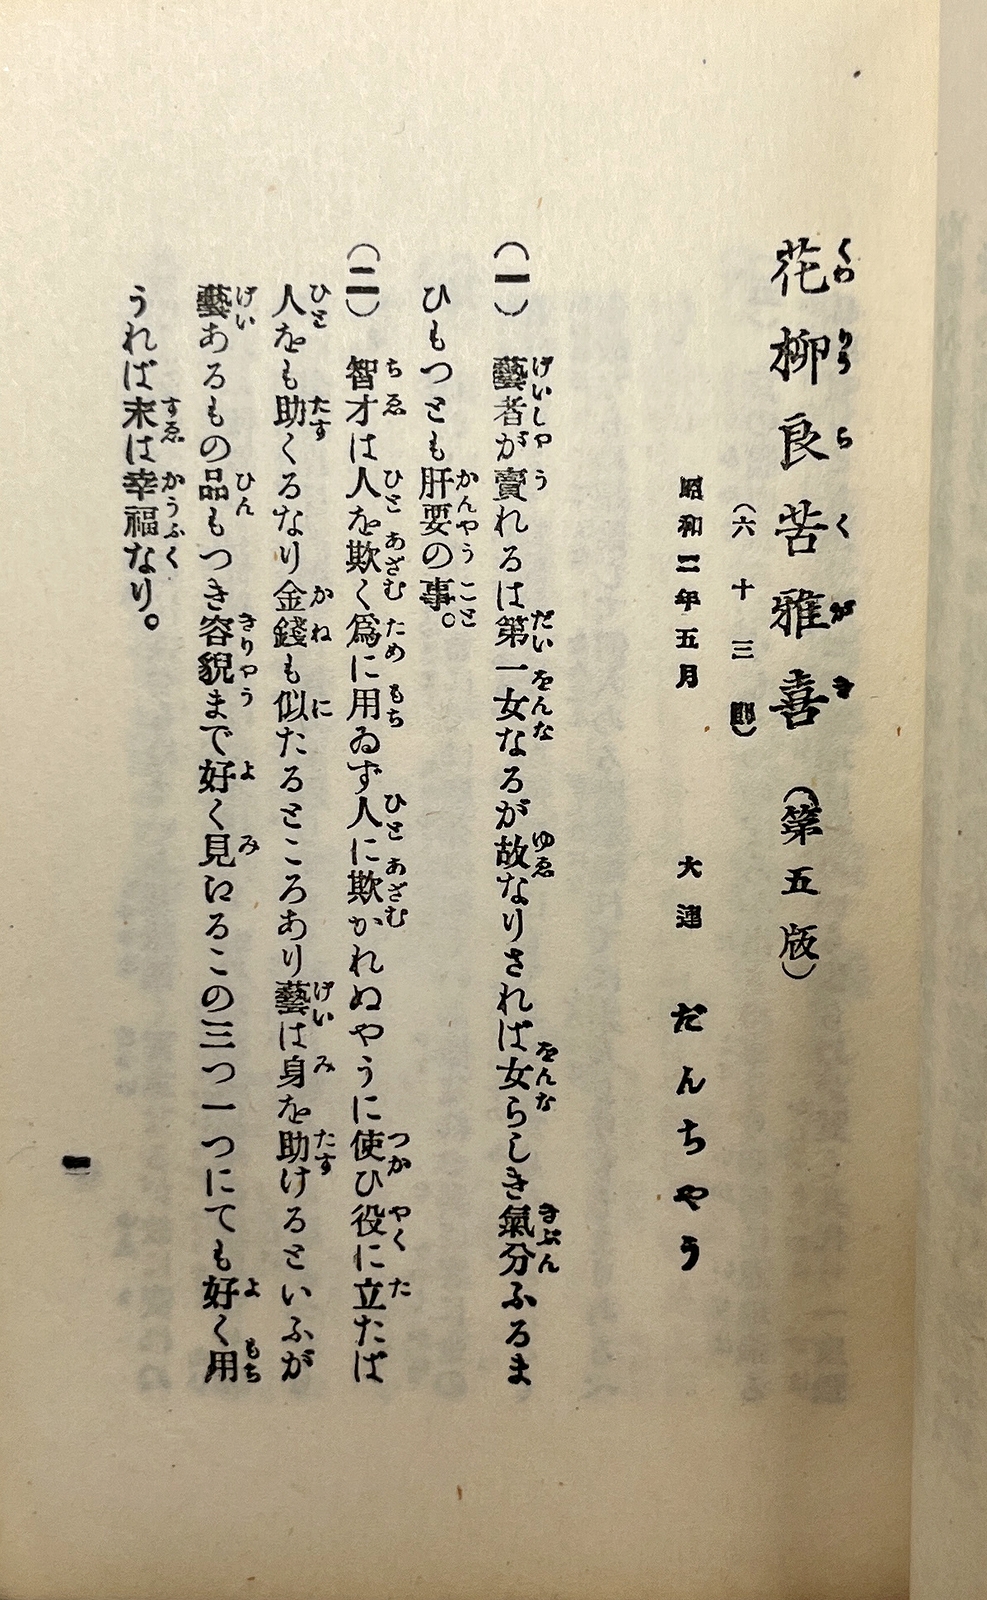 花柳良苦雅喜(第五版)
(六十三則)
昭和二年五月 大連 だんちやう
(一) 藝者が賣れるは第一女なるが故なりされば女らしき氣分ふるま
ひもつとも肝要の事。
(二) 智才は人を欺く爲に用ゐず人に欺かれぬやうに使ひ役に立たば
人をも助くるなり金錢も似たるところあり藝は身を助けるといふが
藝あるもの品もつき容貌まで好く見えるこの三つ一つにても好く用
うれば末は幸福なり。
一